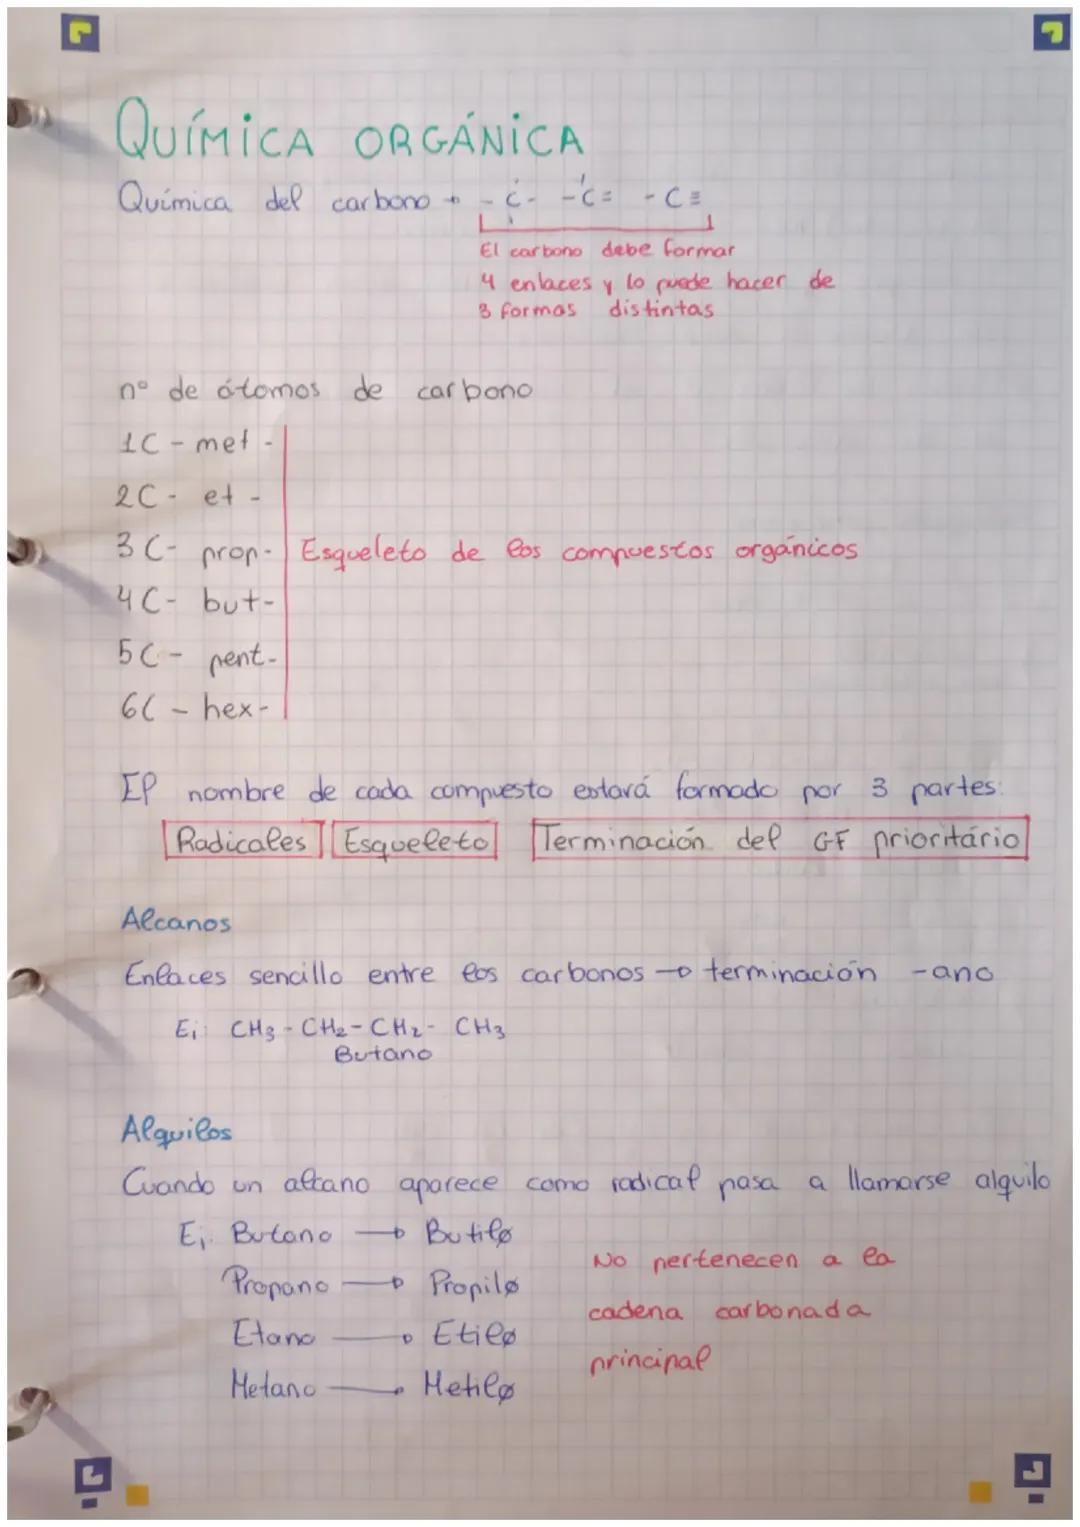 QUÍMICA ORGÁNICA
Química del carbono → -C- -C= -C≡
El carbono debe formar
4 enlaces y lo puede hacer de
3 formas distintas
nº de átomos de carbono
1C - met -
2C - et -
3C - prop - Esqueleto de los compuestos orgánicos
4C - but -
5C - pent -
6C - hex -
El nombre de cada compuesto estará formado por 3 partes:
Radicales Esqueleto Terminación del GF prioritário
Alcanos
Enlaces sencillo entre los carbonos → terminación -ano
Ej: CH3 - CH2 - CH2 - CH3
Butano
Alquilos
Cuando un alcano aparece como radical pasa a llamarse alquilo
Ej: Butano → Butilo
No pertenecen a la
Propano → Propilo
cadena carbonada
Etano → Etilo
principal
Metano → Metilo